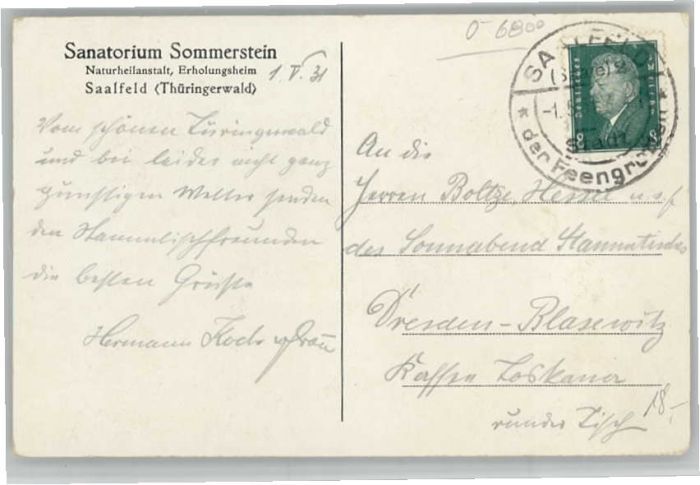 Sanatorium Sommerstein
Naturheilanstalt, Erholungsheim
Saalfeld (Thüringerwald)
1.V.31
Vom schönen Türingerwald
und bei leider nicht ganz
günstigem Wetter senden
den Stammtischfreunden
die besten Grüße
Hermann Koch u Frau
0-6800
SAALFELD
(Saale)
Stadt
der Feengrotten
Deutsches Reich
8
An die
Herren Boltze, Hessel u.s.f
des Sonnabend Stammtisches
Dresden-Blasewitz
Kaffee Toskana
runder Tisch
18,-